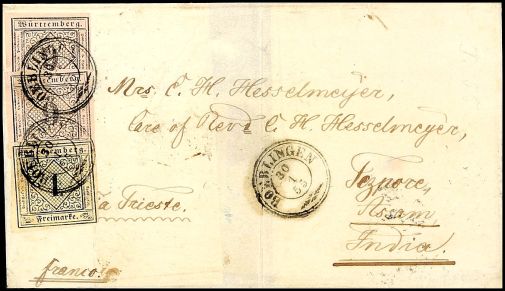 Württemberg.
BOERLINGEN
Freimarke.
Mrs. C. H. Hesselmeyer,
Care of Revd C. H. Hesselmeyer,
BOERLINGEN
30
Tezpore,
Assam
India.
Via Trieste.
franco.